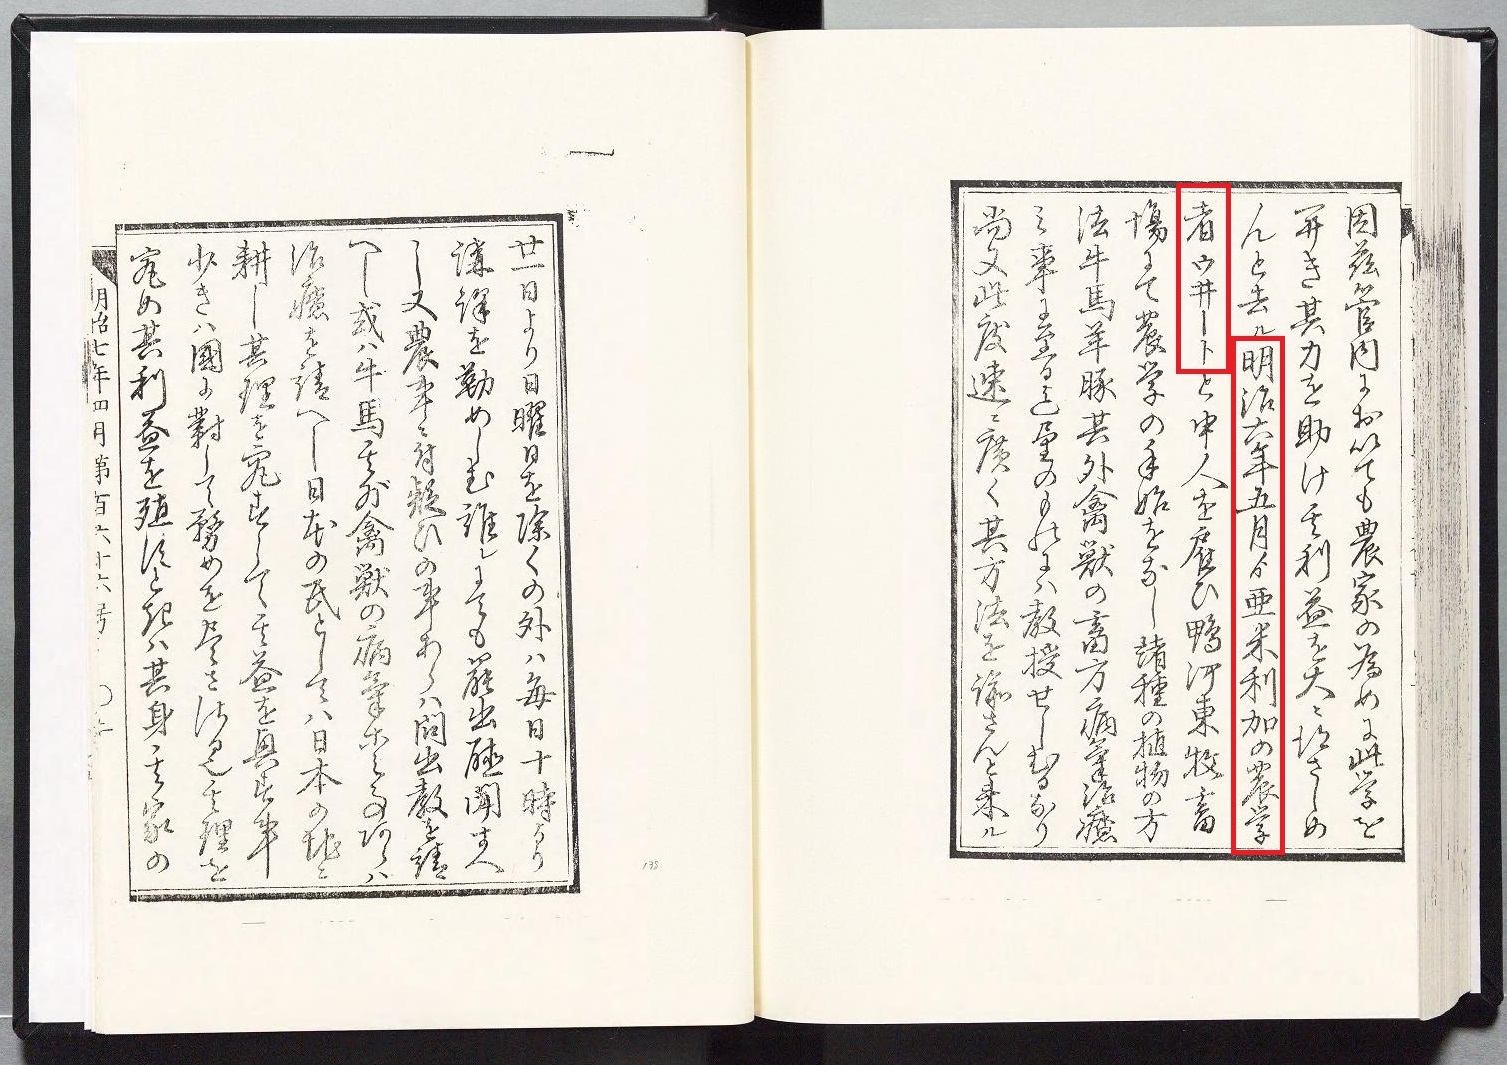 因茲管内におゐても農家の為めに此学を
開き其力を助け其利益を大ニ
んと去ル明治六年五月ゟ亜米利加の農学
者ウ井ートと申人を雇ひ鴨河東牧畜
場にて農学の手始をなし諸種の植物の方
法牛馬羊豚其外禽獣の畜方病気治療
之事に至る迄の教授せしむるなり
尚又此度速ニ廣く其方法を施さんと来ル
廿一日より日曜日を除くの外ハ毎日十時より
講釋を勤めしむ誰しにても罷出聴聞すへ
し又農事ニ付疑ひの事あらハ問出教を請
へし或ハ牛馬其外禽獣の病気
治療を請へし日本の民としてハ日本の地ニ
耕し其理を究すして其益を興す事
少き八國に對して務めを尽さ其理を
究め其利益を殖さハ其身其家の
明治七年四月第百六十六号